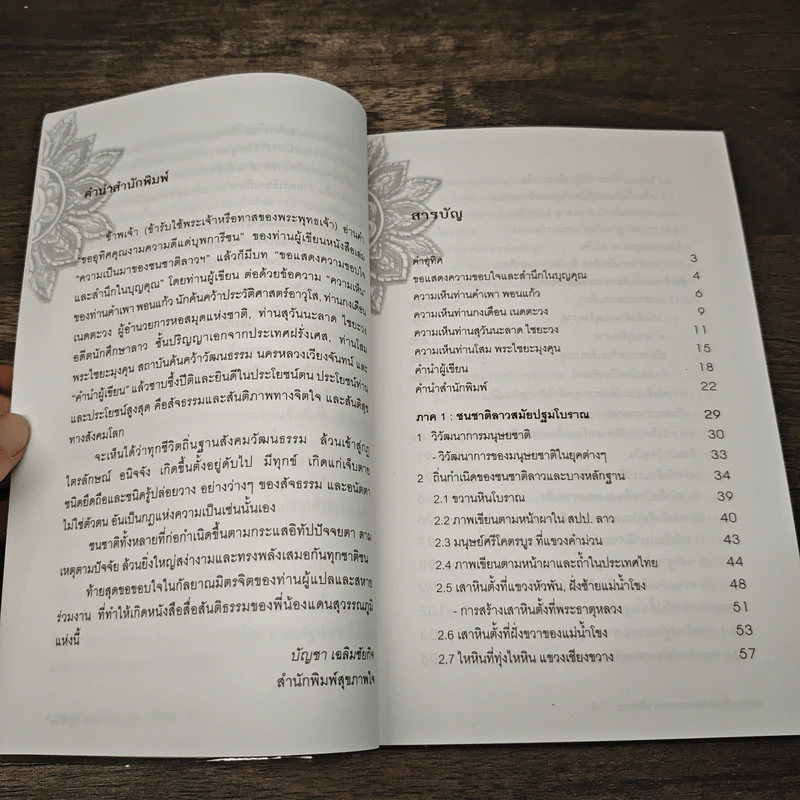 คำนำสำนักพิมพ์
ข้าพเจ้า (ข้ารับใช้พระเจ้าหรือทาสของพระพุทธเจ้า) อ่านคำ
"ขออุทิศคุณงามความดีแด่บุพการีชน" ของท่านผู้เขียนหนังสือเล่ม
"ความเป็นมาของชนชาติลาวฯ" แล้วก็มีบท "ขอแสดงความขอบใจ
และสำนึกในบุญคุณ" โดยท่านผู้เขียน ต่อด้วยข้อความ "ความเห็น"
ของท่านคำเพา พอนแก้ว นักค้นคว้าประวัติศาสตร์อาวุโส, ท่านกงเดือน
เนดตะวง ผู้อำนวยการหอสมุดแห่งชาติ, ท่านสุวันนะลาด ไซยะวง
อดีตนักศึกษาลาว ชั้นปริญญาเอกจากประเทศฝรั่งเศส, ท่านโสม
พระไซยะมุงคุน สถาบันค้นคว้าวัฒนธรรม นครหลวงเวียงจันทน์ และ
"คำนำผู้เขียน" แล้วซาบซึ้งปีติและยินดีในประโยชน์ตน ประโยชน์ท่าน
และประโยชน์สูงสุด คือสัจธรรมและสันติภาพทางจิตใจ และสันติสุข
ทางสังคมโลก
จะเห็นได้ว่าทุกชีวิตถิ่นฐานสังคมวัฒนธรรม ล้วนเข้าสู่กฎ
ไตรลักษณ์ อนิจจัง เกิดขึ้นตั้งอยู่ดับไป มีทุกข์ เกิดแก่เจ็บตาย
ชนิดยึดถือและชนิดรู้ปล่อยวาง อย่างว่างๆ ของสัจธรรม และอนัตตา
ไม่ใช่ตัวตน อันเป็นกฎแห่งความเป็นเช่นนั้นเอง
ชนชาติทั้งหลายที่ก่อกำเนิดขึ้นตามกระแสอิทัปปัจจยตา ตาม
เหตุตามปัจจัย ล้วนยิ่งใหญ่สง่างามและทรงพลังเสมอกันทุกชาติชน
ท้ายสุดขอขอบใจในกัลยาณมิตรจิตของท่านผู้แปลและสหาย
ร่วมงาน ที่ทำให้เกิดหนังสือสื่อสันติธรรมของพี่น้องแดนสุวรรณภูมิ
แห่งนี้
บัญชา เฉลิมชัยกิจ
สำนักพิมพ์สุขภาพใจ
สารบัญ
คำอุทิศ 3
ขอแสดงความขอบใจและสำนึกในบุญคุณ 4
ความเห็นท่านคำเพา พอนแก้ว 6
ความเห็นท่านกงเดือน เนดตะวง 9
ความเห็นท่านสุวันนะลาด ไซยะวง 11
ความเห็นท่านโสม พระไซยะมุงคุน 15
คำนำผู้เขียน 18
คำนำสำนักพิมพ์ 22
ภาค 1 : ชนชาติลาวสมัยปฐมโบราณ 29
1 วิวัฒนาการมนุษยชาติ 30
- วิวัฒนาการของมนุษยชาติในยุคต่างๆ 33
2 ถิ่นกำเนิดของชนชาติลาวและบางหลักฐาน 34
2.1 ขวานหินโบราณ 39
2.2 ภาพเขียนตามหน้าผาใน สปป. ลาว 40
2.3 มนุษย์ศรีโคตรบูร ที่แขวงคำม่วน 43
2.4 ภาพเขียนตามหน้าผาและถ้ำในประเทศไทย 44
2.5 เสาหินตั้งที่แขวงหัวพัน, ฝั่งซ้ายแม่น้ำโขง 48
- การสร้างเสาหินตั้งที่พระธาตุหลวง 51
2.6 เสาหินตั้งที่ฝั่งขวาของแม่น้ำโขง 53
2.7 ไหหินที่ทุ่งไหหิน แขวงเชียงขวาง 57